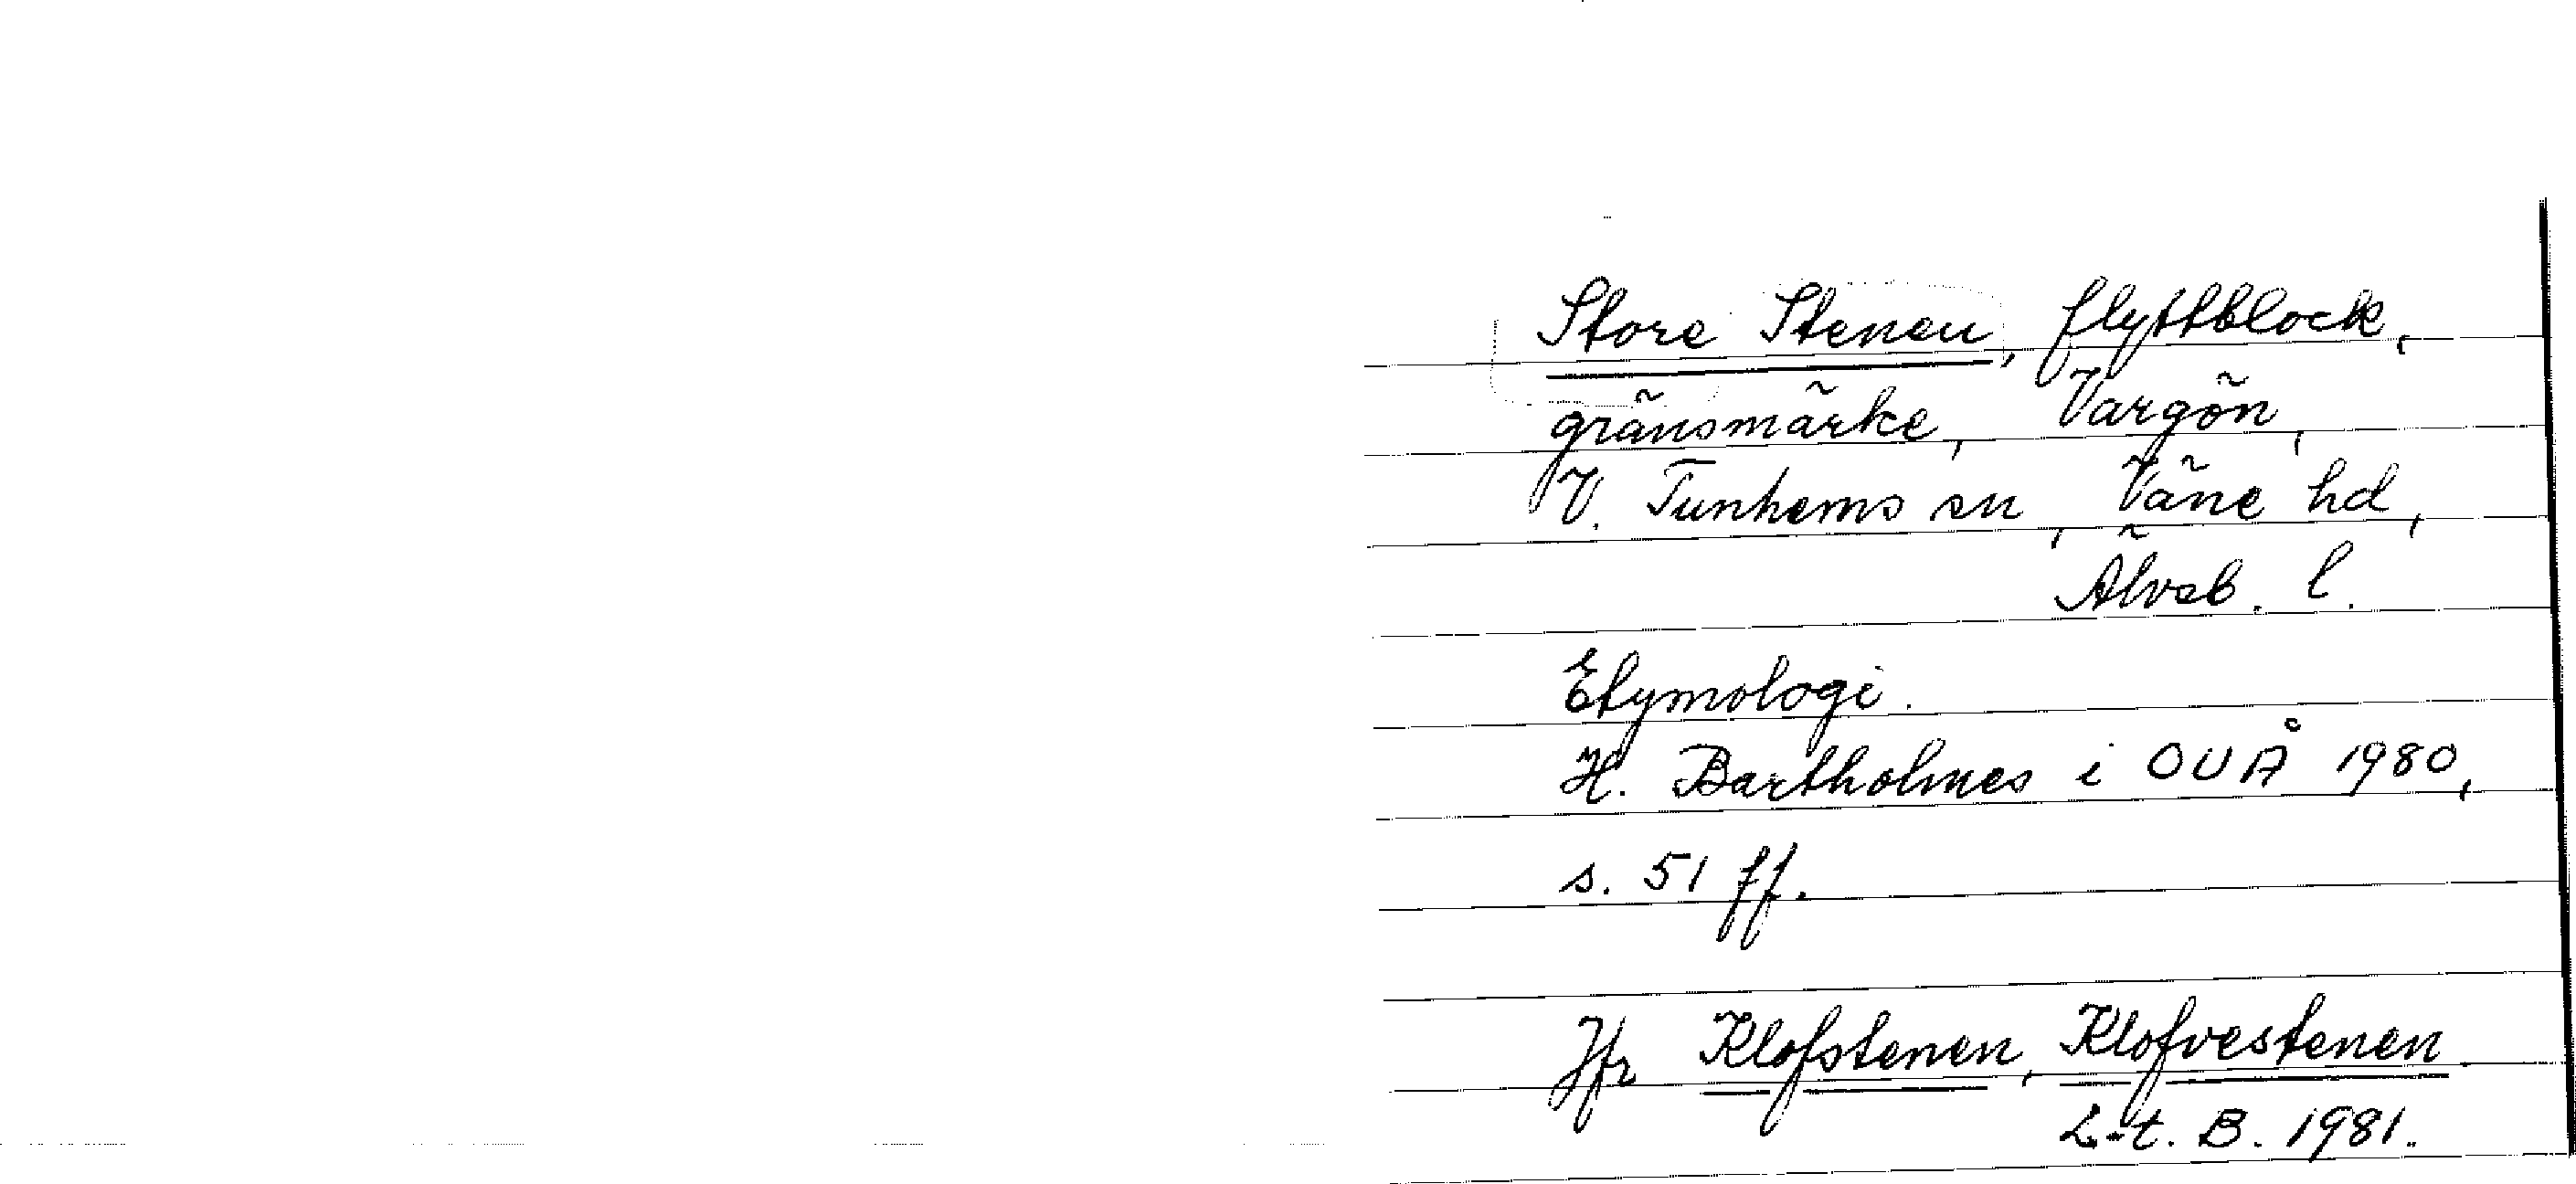 Store Stenen, flyttblock,
gränsmärke, Vargön,
V. Tunhems sn, Väne hd,
Älvsb. l.
Etymologi.
H. Bartholmes i OUÅ 1980,
s. 51 ff.
Jfr Klofstenen, Klofvestenen.
L-t. B. 1981.